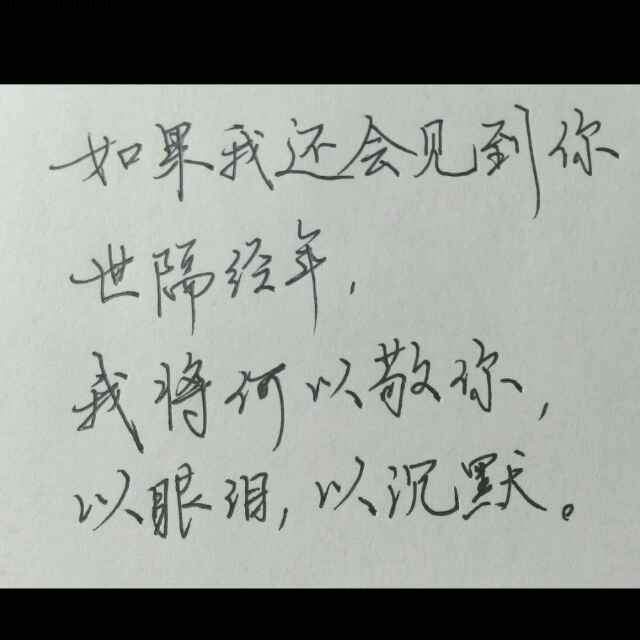 如果我还会见到你
世隔经年，
我将何以敬你，
以眼泪，以沉默。